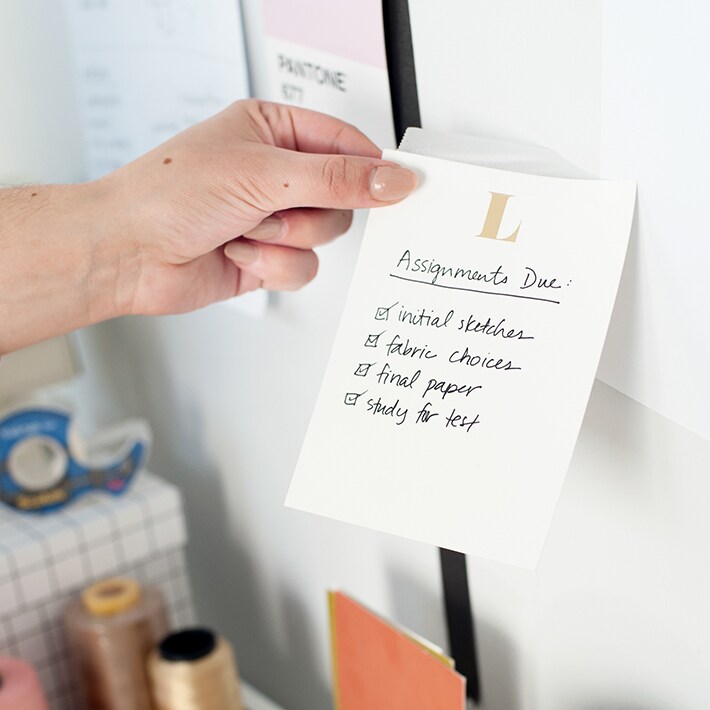 PANTONE
677
L
Assignments Due:
initial sketches
fabric choices
final paper
study for test